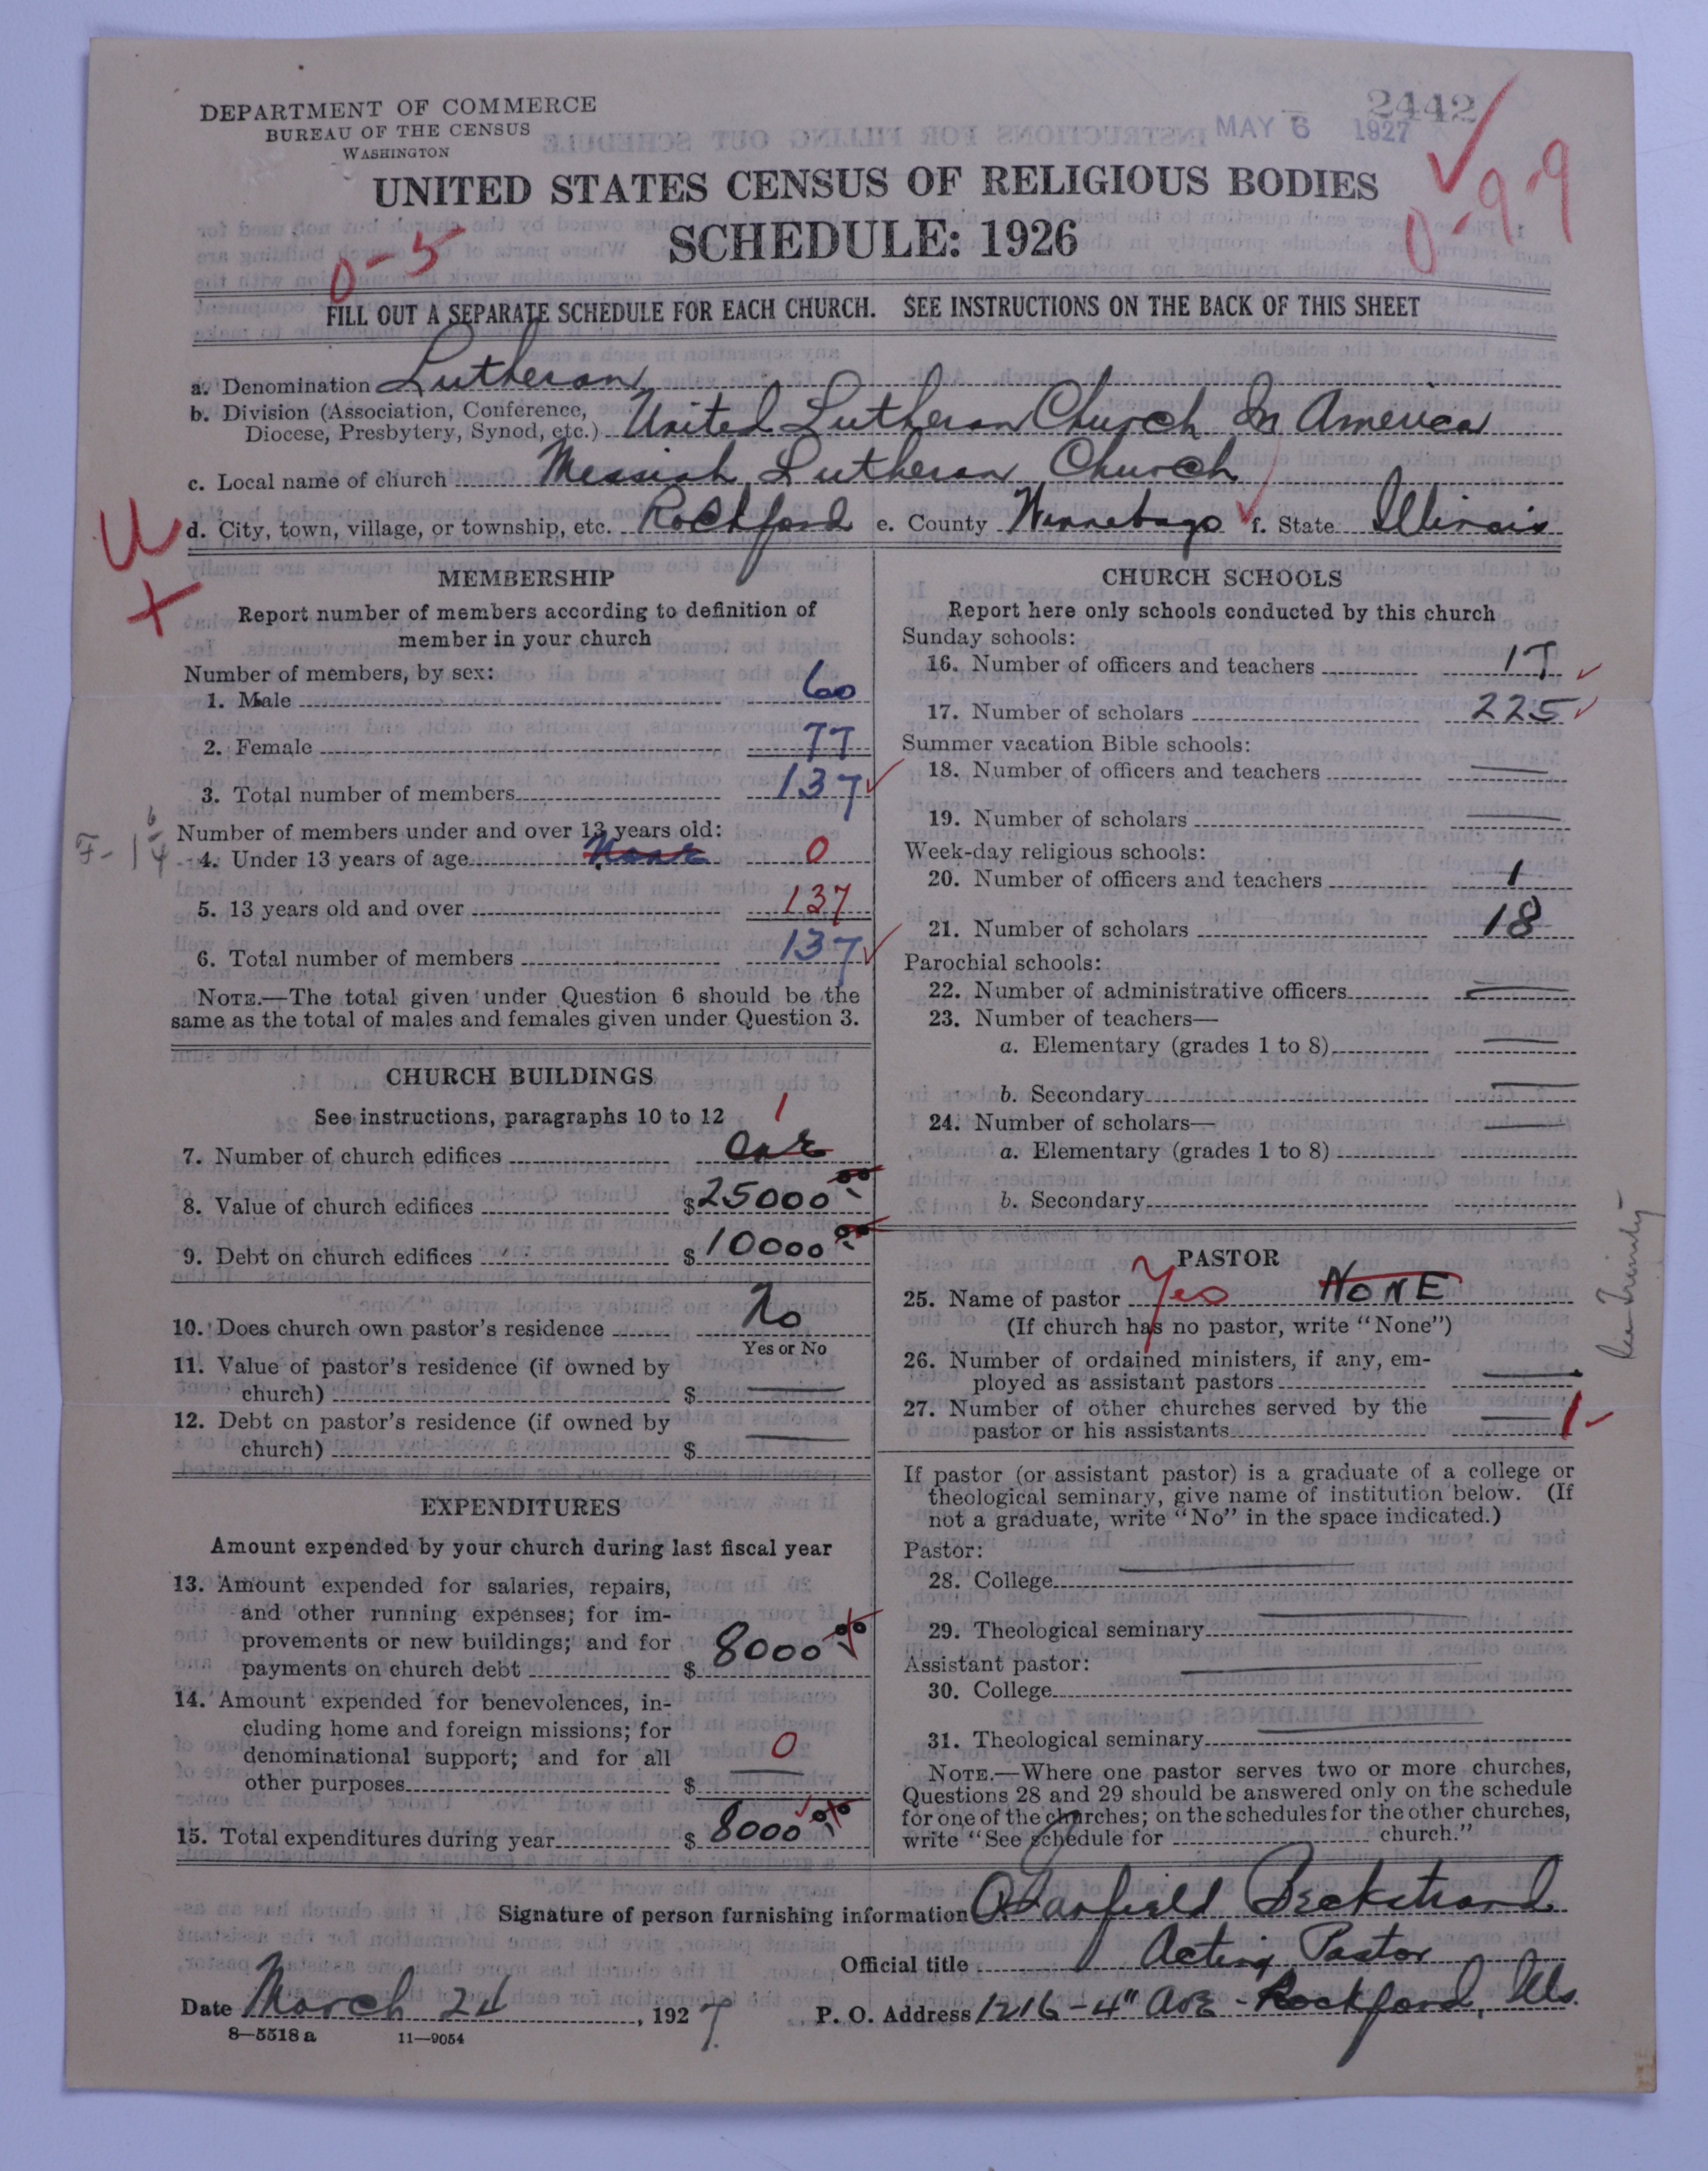 DEPARTMENT OF COMMERCE
BUREAU OF THE CENSUS
WASHINGTON
2442
MAY 6 1927
UNITED STATES CENSUS OF RELIGIOUS BODIES
SCHEDULE: 1926
0-9-9
0-5
FILL OUT A SEPARATE SCHEDULE FOR EACH CHURCH. SEE INSTRUCTIONS ON THE BACK OF THIS SHEET
a. Denomination Lutheran
b. Division (Association, Conference, Diocese, Presbytery, Synod, etc.) United Lutheran Church In America
c. Local name of church Messiah Lutheran Church
d. City, town, village, or township, etc. Rockford e. County Winnebago f. State Illinois
U
+
MEMBERSHIP
Report number of members according to definition of
member in your church
Number of members, by sex:
1. Male 60
2. Female 77
3. Total number of members 137
Number of members under and over 13 years old:
4. Under 13 years of age None 0
5. 13 years old and over 137
6. Total number of members 137
NOTE.—The total given under Question 6 should be the
same as the total of males and females given under Question 3.
CHURCH BUILDINGS
See instructions, paragraphs 10 to 12
1
7. Number of church edifices One
8. Value of church edifices $25000 00
9. Debt on church edifices $10000 00
10. Does church own pastor's residence No
Yes or No
11. Value of pastor's residence (if owned by
church) $
12. Debt on pastor's residence (if owned by
church) $
EXPENDITURES
Amount expended by your church during last fiscal year
13. Amount expended for salaries, repairs,
and other running expenses; for im-
provements or new buildings; and for
payments on church debt $ 8000 00
14. Amount expended for benevolences, in-
cluding home and foreign missions; for
denominational support; and for all
other purposes $ 0
15. Total expenditures during year $ 8000 00
CHURCH SCHOOLS
Report here only schools conducted by this church
Sunday schools:
16. Number of officers and teachers 17
17. Number of scholars 225
Summer vacation Bible schools:
18. Number of officers and teachers
19. Number of scholars
Week-day religious schools:
20. Number of officers and teachers 1
21. Number of scholars 18
Parochial schools:
22. Number of administrative officers
23. Number of teachers—
a. Elementary (grades 1 to 8)
b. Secondary
24. Number of scholars—
a. Elementary (grades 1 to 8)
b. Secondary
PASTOR
25. Name of pastor Yes NONE
(If church has no pastor, write "None")
26. Number of ordained ministers, if any, em-
ployed as assistant pastors
27. Number of other churches served by the
pastor or his assistants 1
If pastor (or assistant pastor) is a graduate of a college or
theological seminary, give name of institution below. (If
not a graduate, write "No" in the space indicated.)
Pastor:
28. College
29. Theological seminary
Assistant pastor:
30. College
31. Theological seminary
NOTE.—Where one pastor serves two or more churches,
Questions 28 and 29 should be answered only on the schedule
for one of the churches; on the schedules for the other churches,
write "See schedule for church."
Signature of person furnishing information O Garfield Beckstrand
Official title Acting Pastor
Date March 24, 1927 P. O. Address 1216-4" Ave - Rockford, Ills.
8—5518a 11—9054